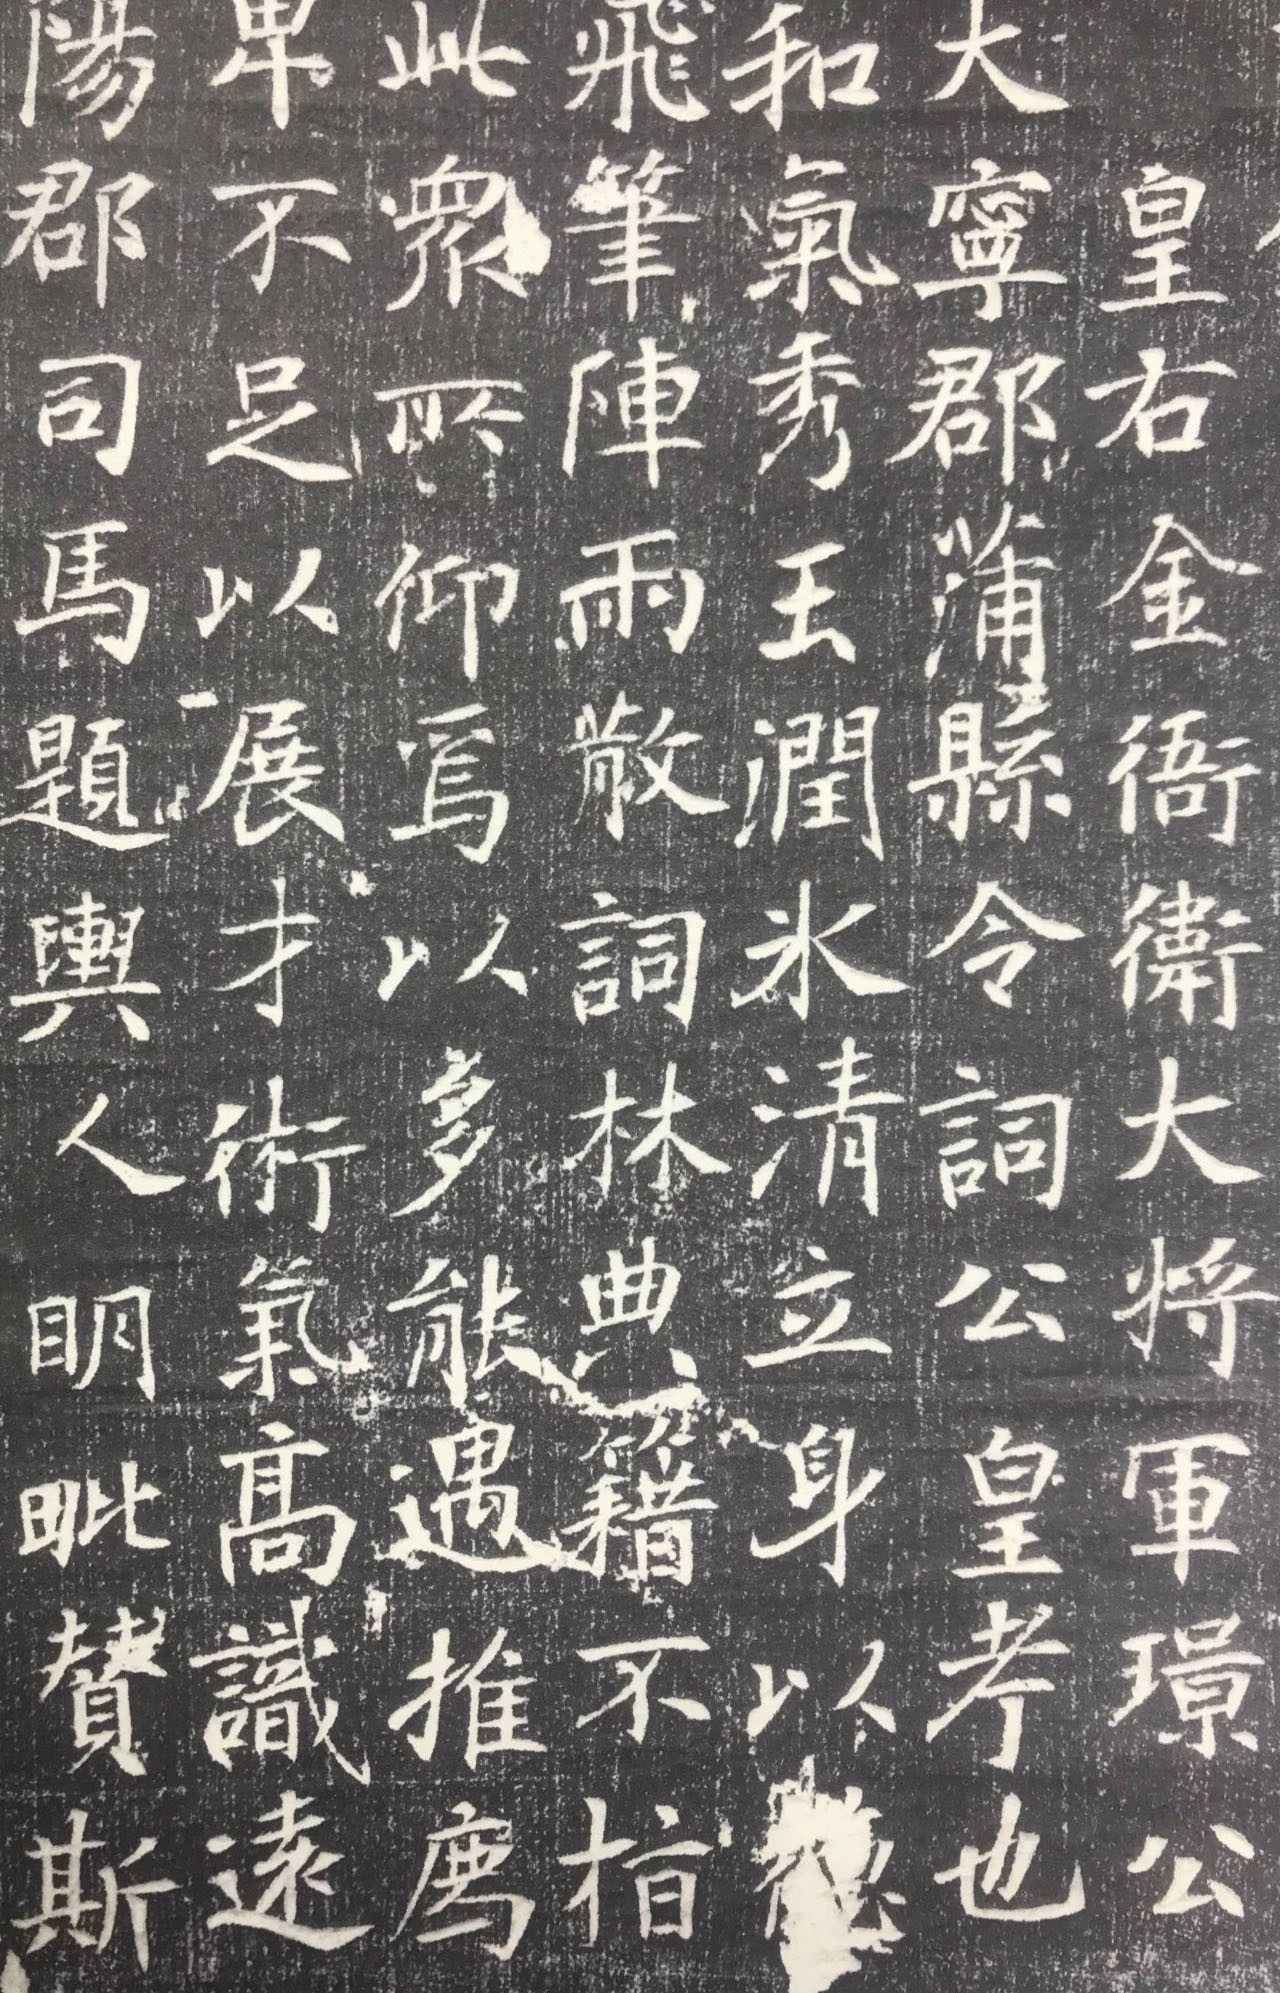 皇右金衙衛大將軍璟公
大寧郡蒲縣令詞公皇考也
和氣秀玉潤氷清立身以德
飛筆陣雨散詞林典籍不指
此衆所仰焉以多能遇推為
卑不足以展才術氣高識遠
陽郡司馬題輿人明毗贊斯